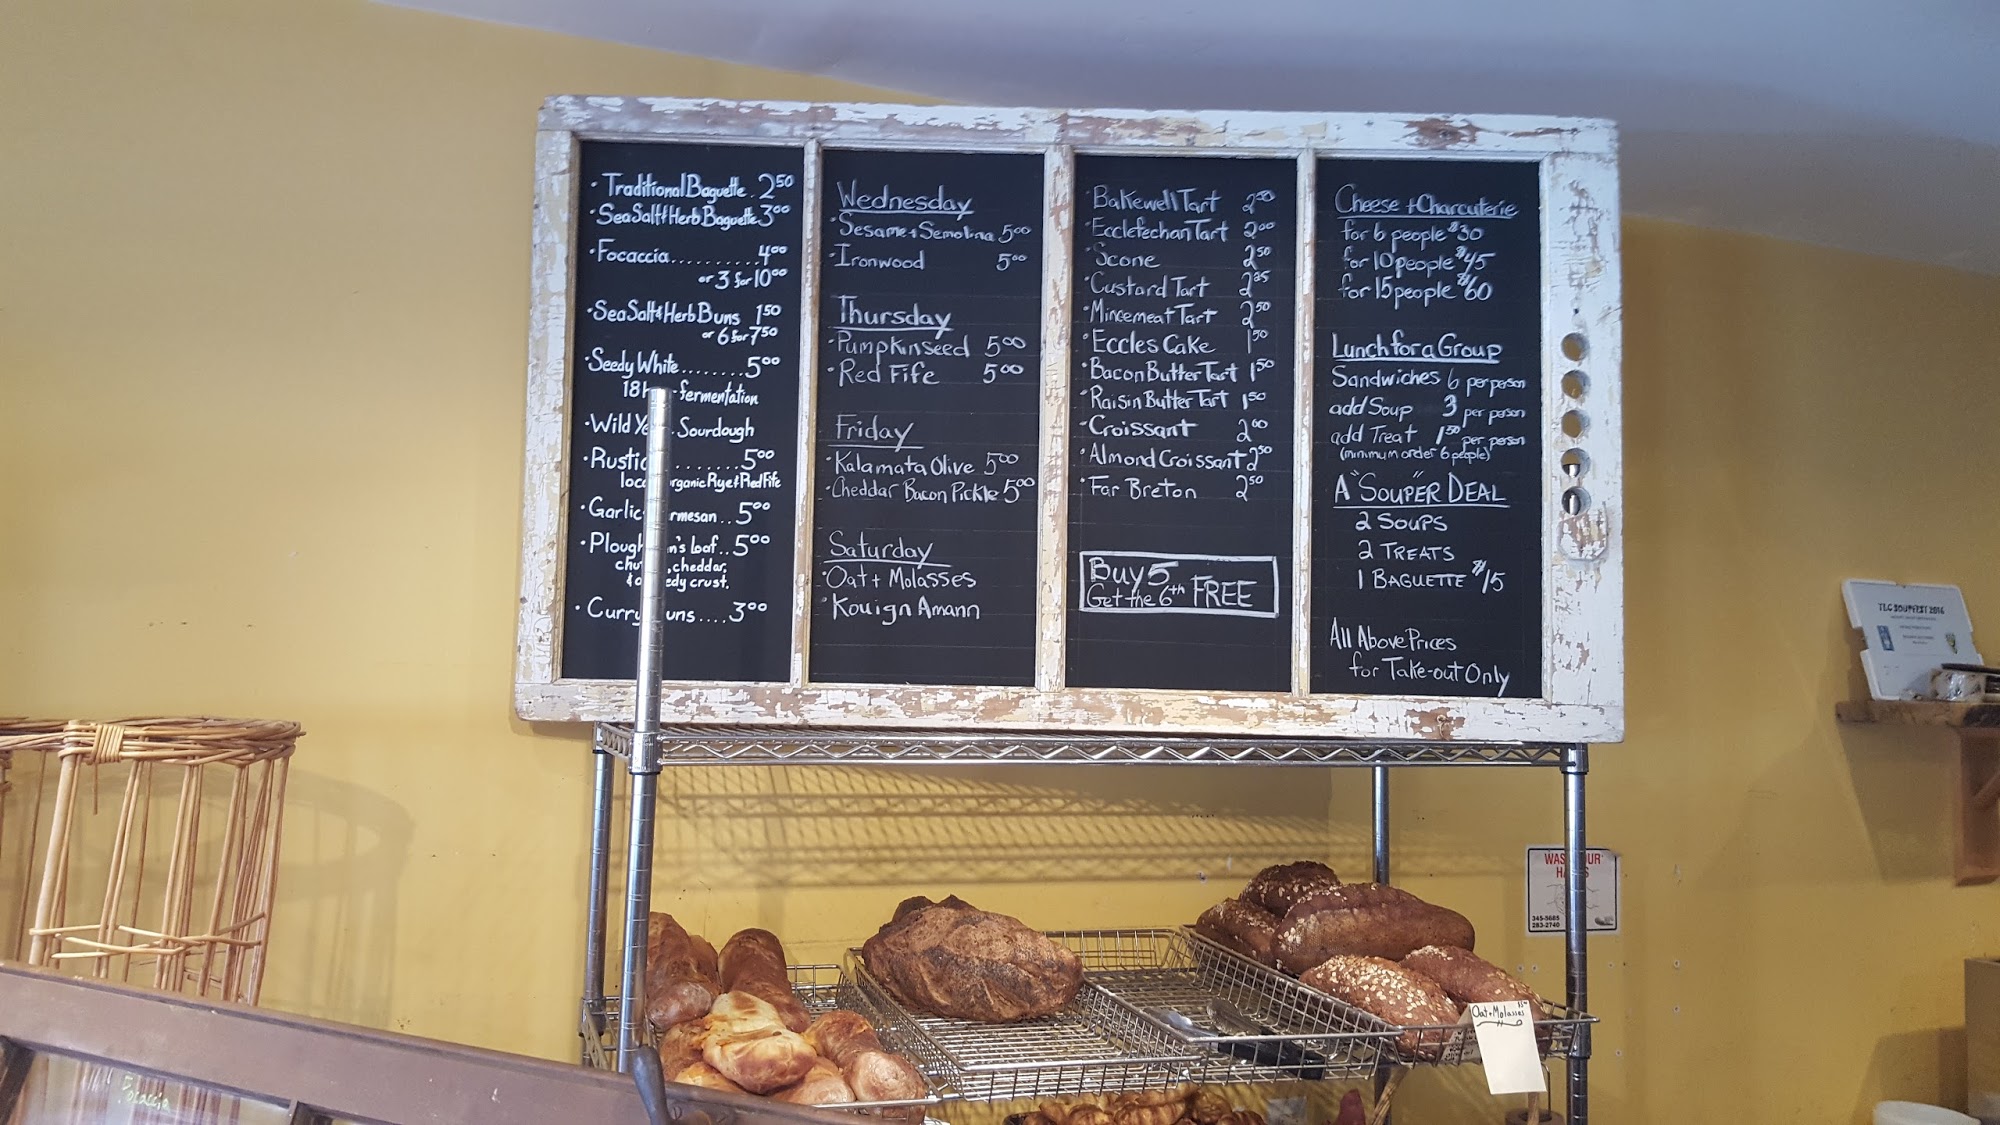 · Traditional Baguette . 2.50
· Sea Salt & Herb Baguette. 3.00
· Focaccia.......... 4.00
or 3 for 10.00
· Sea Salt & Herb Buns 1.50
or 6 for 7.50
· Seedy White........ 5.00
18 -fermentation
· Wild Sourdough
· Rustic ....... 5.00
organic Rye & Red Fife
· Garlic .. 5.00
· Loaf.. 5.00
cheddar,
crust.
· Curry .... 3.00
Wednesday
· Sesame + Semolina 5.00
· Ironwood 5.00
Thursday
· Pumpkinseed 5.00
· Red Fife 5.00
Friday
· Kalamata Olive 5.00
· Cheddar Bacon Pickle 5.00
Saturday
· Oat + Molasses
· Kouign Amann
· Bakewell Tart 2.50
· Ecclefechan Tart 2.00
· Scone 2.50
· Custard Tart
· Mincemeat Tart 2.50
· Eccles Cake 1.50
· Bacon Butter Tart 1.50
· Raisin Butter Tart 1.50
· Croissant 2.00
· Almond Croissant 2.50
· Far Breton 2.50
Buy 5
Get the 6th FREE
Cheese + Charcuterie
for 6 people $30
for 10 people $45
for 15 people $60
Lunch for a Group
Sandwiches 6 per person
add Soup 3 per person
add Treat 1.50 per person
(minimum order 6 people)
A "SOUP"ER DEAL
2 SOUPS
2 TREATS
1 BAGUETTE $15
All Above Prices
for Take-out Only
TLC SOUPFEST 2016
345-5685
283-2740
Oat + Molasses
Focaccia